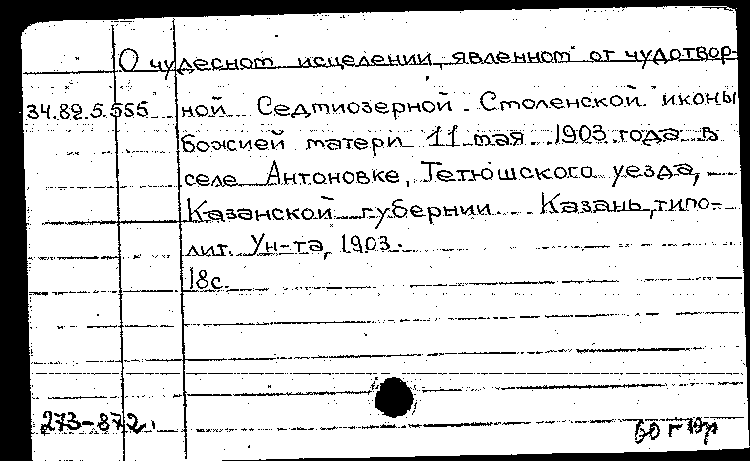 О чудесном исцелении, явленном от чудотвор-
34.82.5.555 ной Седмиозерной Смоленской иконы
божией матери 11 мая 1903 года в
селе Антоновке, Тетюшского уезда,
Казанской губернии. Казань, типо-
лит. Ун-та, 1903.
18с.
273-872.